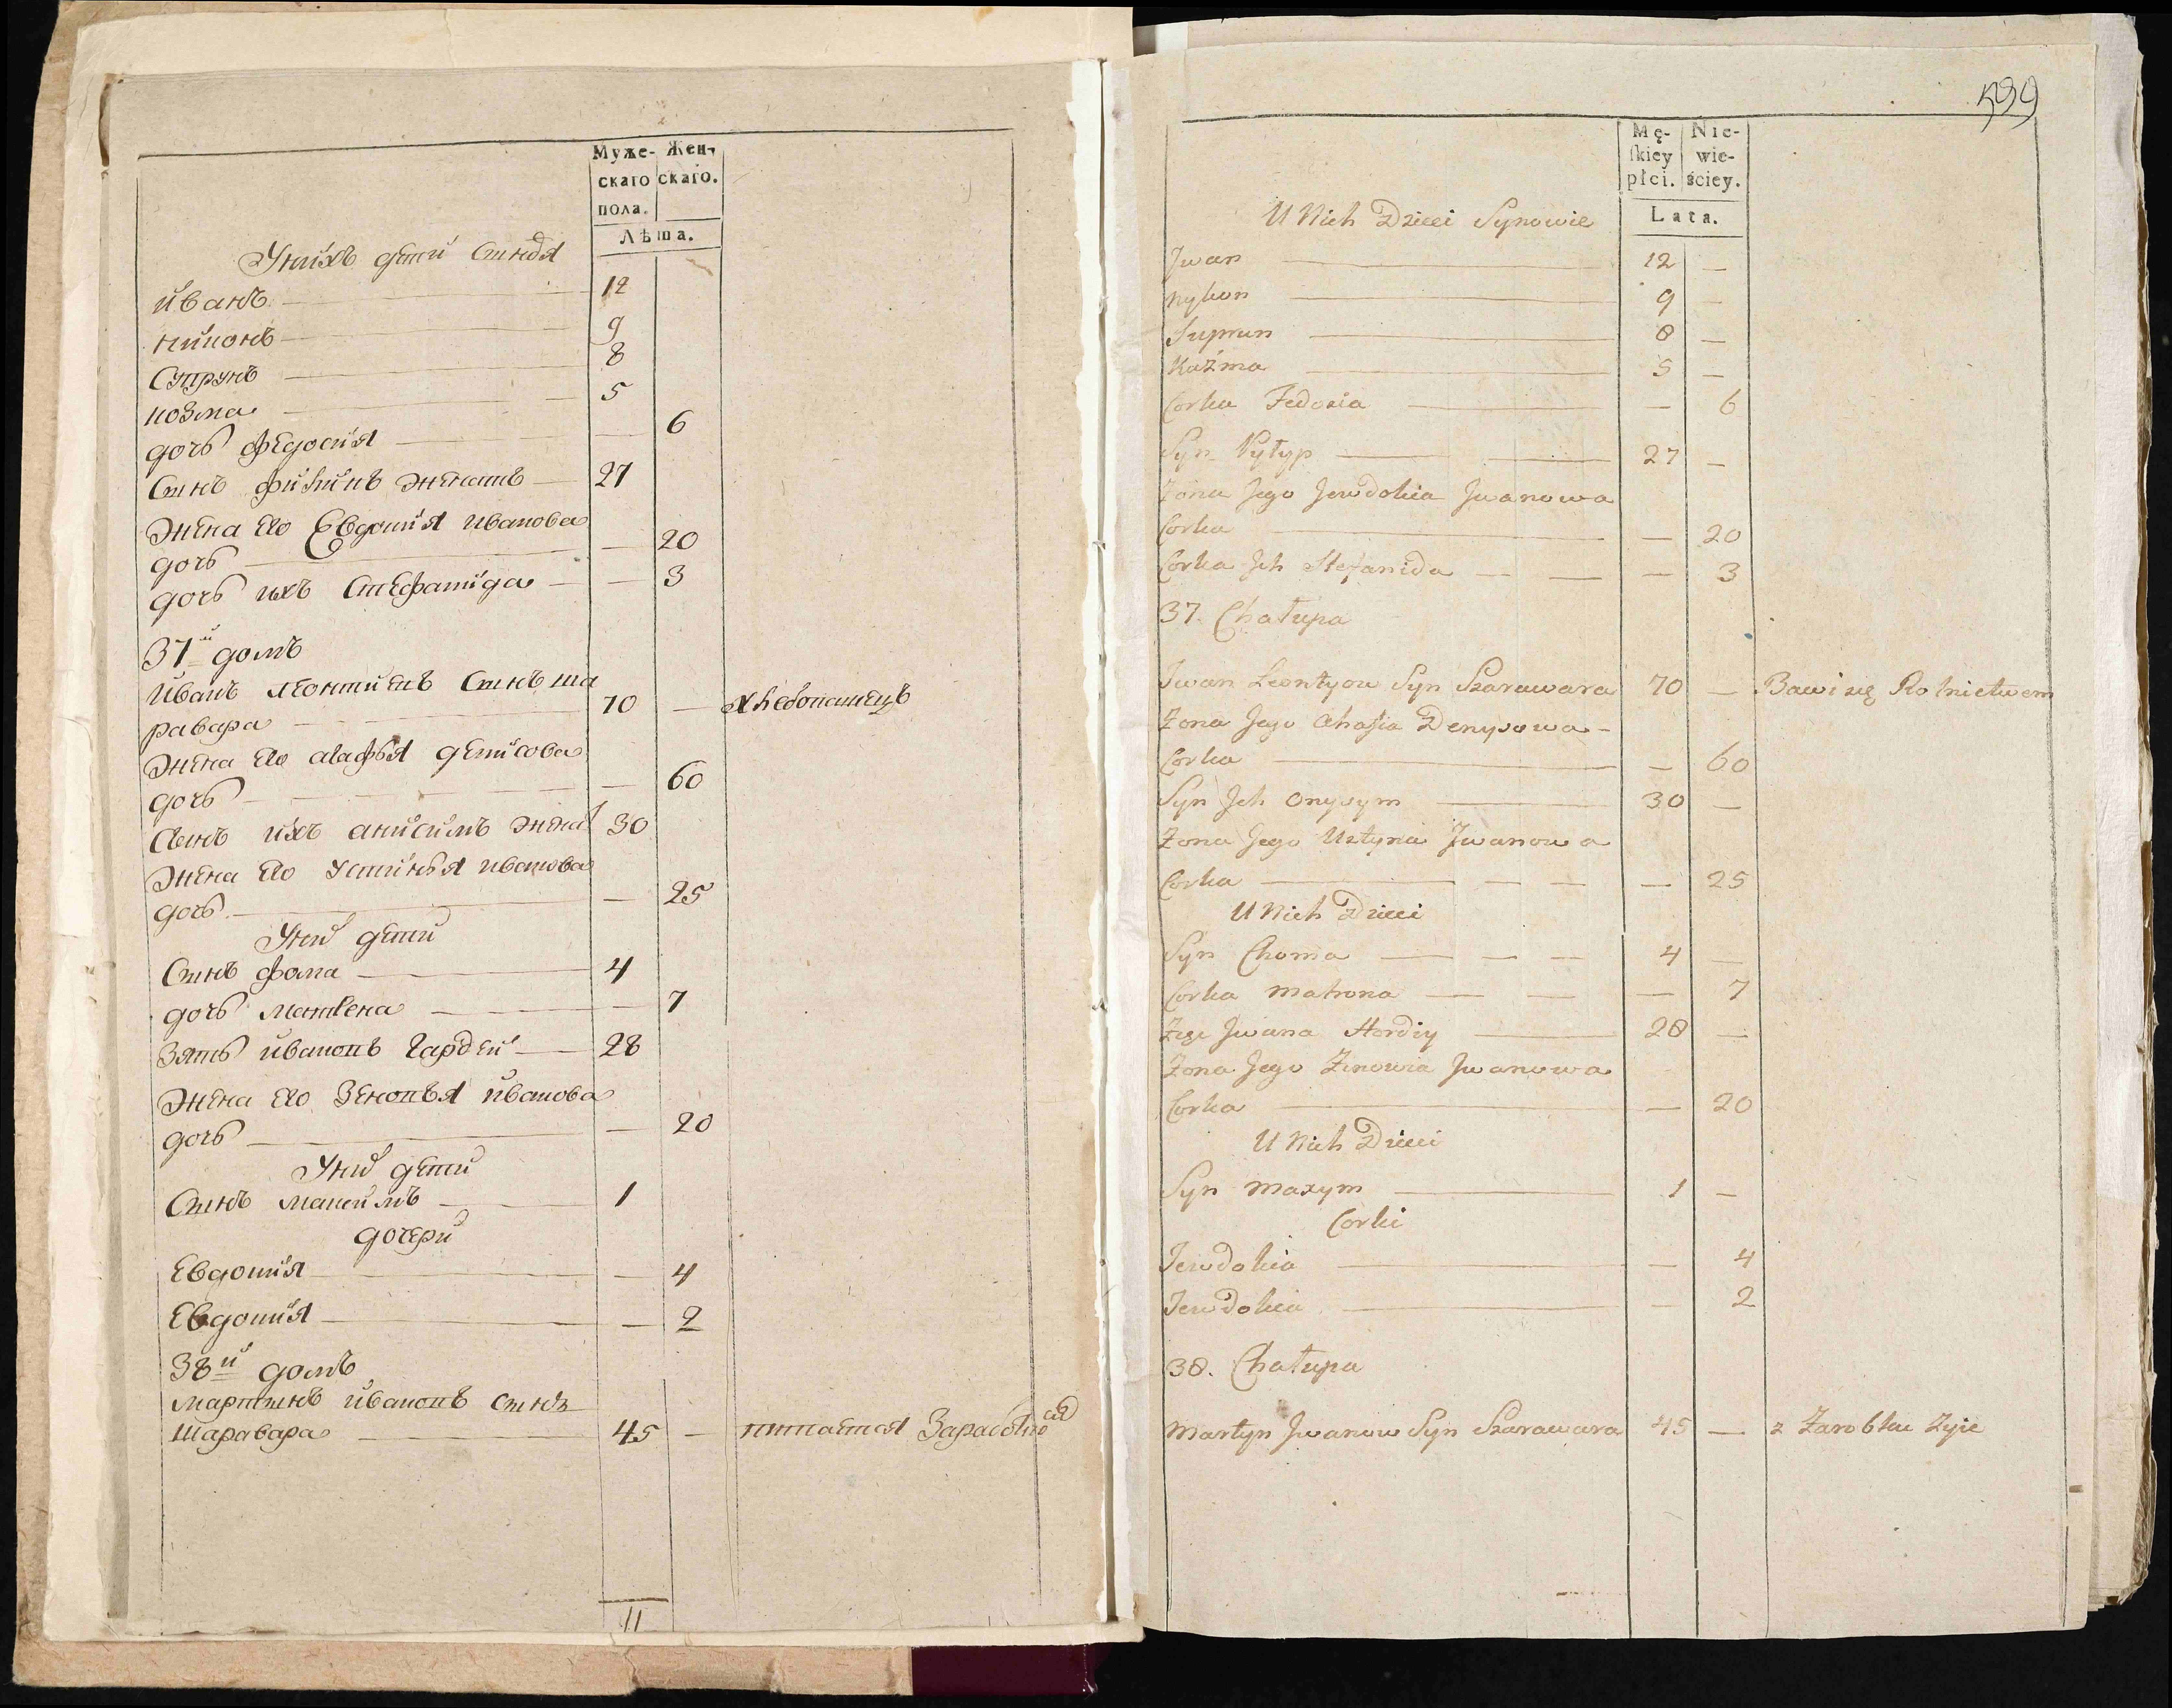 Муже- Жен-
скаго скаго.
пола.
Лѣта.
У нихъ дети Сыновя
иванъ 12
никонъ 9
Супрунъ 8
козма 5
дочь федосия — 6
Сынъ филипъ женатъ 27
Жена его Евдокия иванова
дочь — 20
дочь ихъ Стефанида — 3
37й домъ
иванъ леонтиевъ Сынъ ша
равара 70 — хлебопашецъ
Жена его агафья денисова
дочь — 60
Сынъ ихъ анисимъ женат 30
Жена его устинья иванова
дочь — 25
У них дети
Сынъ фома 4
дочь матрена — 7
Зять ивановъ гардей 28
Жена его Зеновья иванова
дочь — 20
У них дети
Сынъ максимъ 1
дочери
Евдокия — 4
Евдокия — 2
38й домъ
мартынъ ивановъ Сынъ
Шаравара 45 — питается Заработко
11
599
Mę- Nie-
skiey wie-
płci. ściey.
Lata.
U Nich Dzieci Synowie
Jwan 12 —
Nykon 9 —
Suprun 8 —
Kuźma 5 —
Corka Fedosia — 6
Syn Pyłyp 27 —
Żona Jego Jewdokia Jwanowa
Corka — 20
Corka Jch Stefanida — 3
37. Chałupa
Jwan Leontyow Syn Szarawara 70 — Bawi się Rolnictwem
Żona Jego Ahafia Denysowa -
Corka — 60
Syn Jch Onysym 30 —
Żona Jego Ustynia Jwanowa
Corka — 25
U Nich Dzieci
Syn Choma 4 —
Corka Matrona — 7
Zięć Jwana Hordiy 28 —
Żona Jego Zinowia Jwanowa
Corka — 20
U Nich Dzieci
Syn Maxym 1 —
Corki
Jewdokia — 4
Jewdokia — 2
38. Chałupa
Martyn Jwanow Syn Szarawara 45 — z Zarobku Zyie